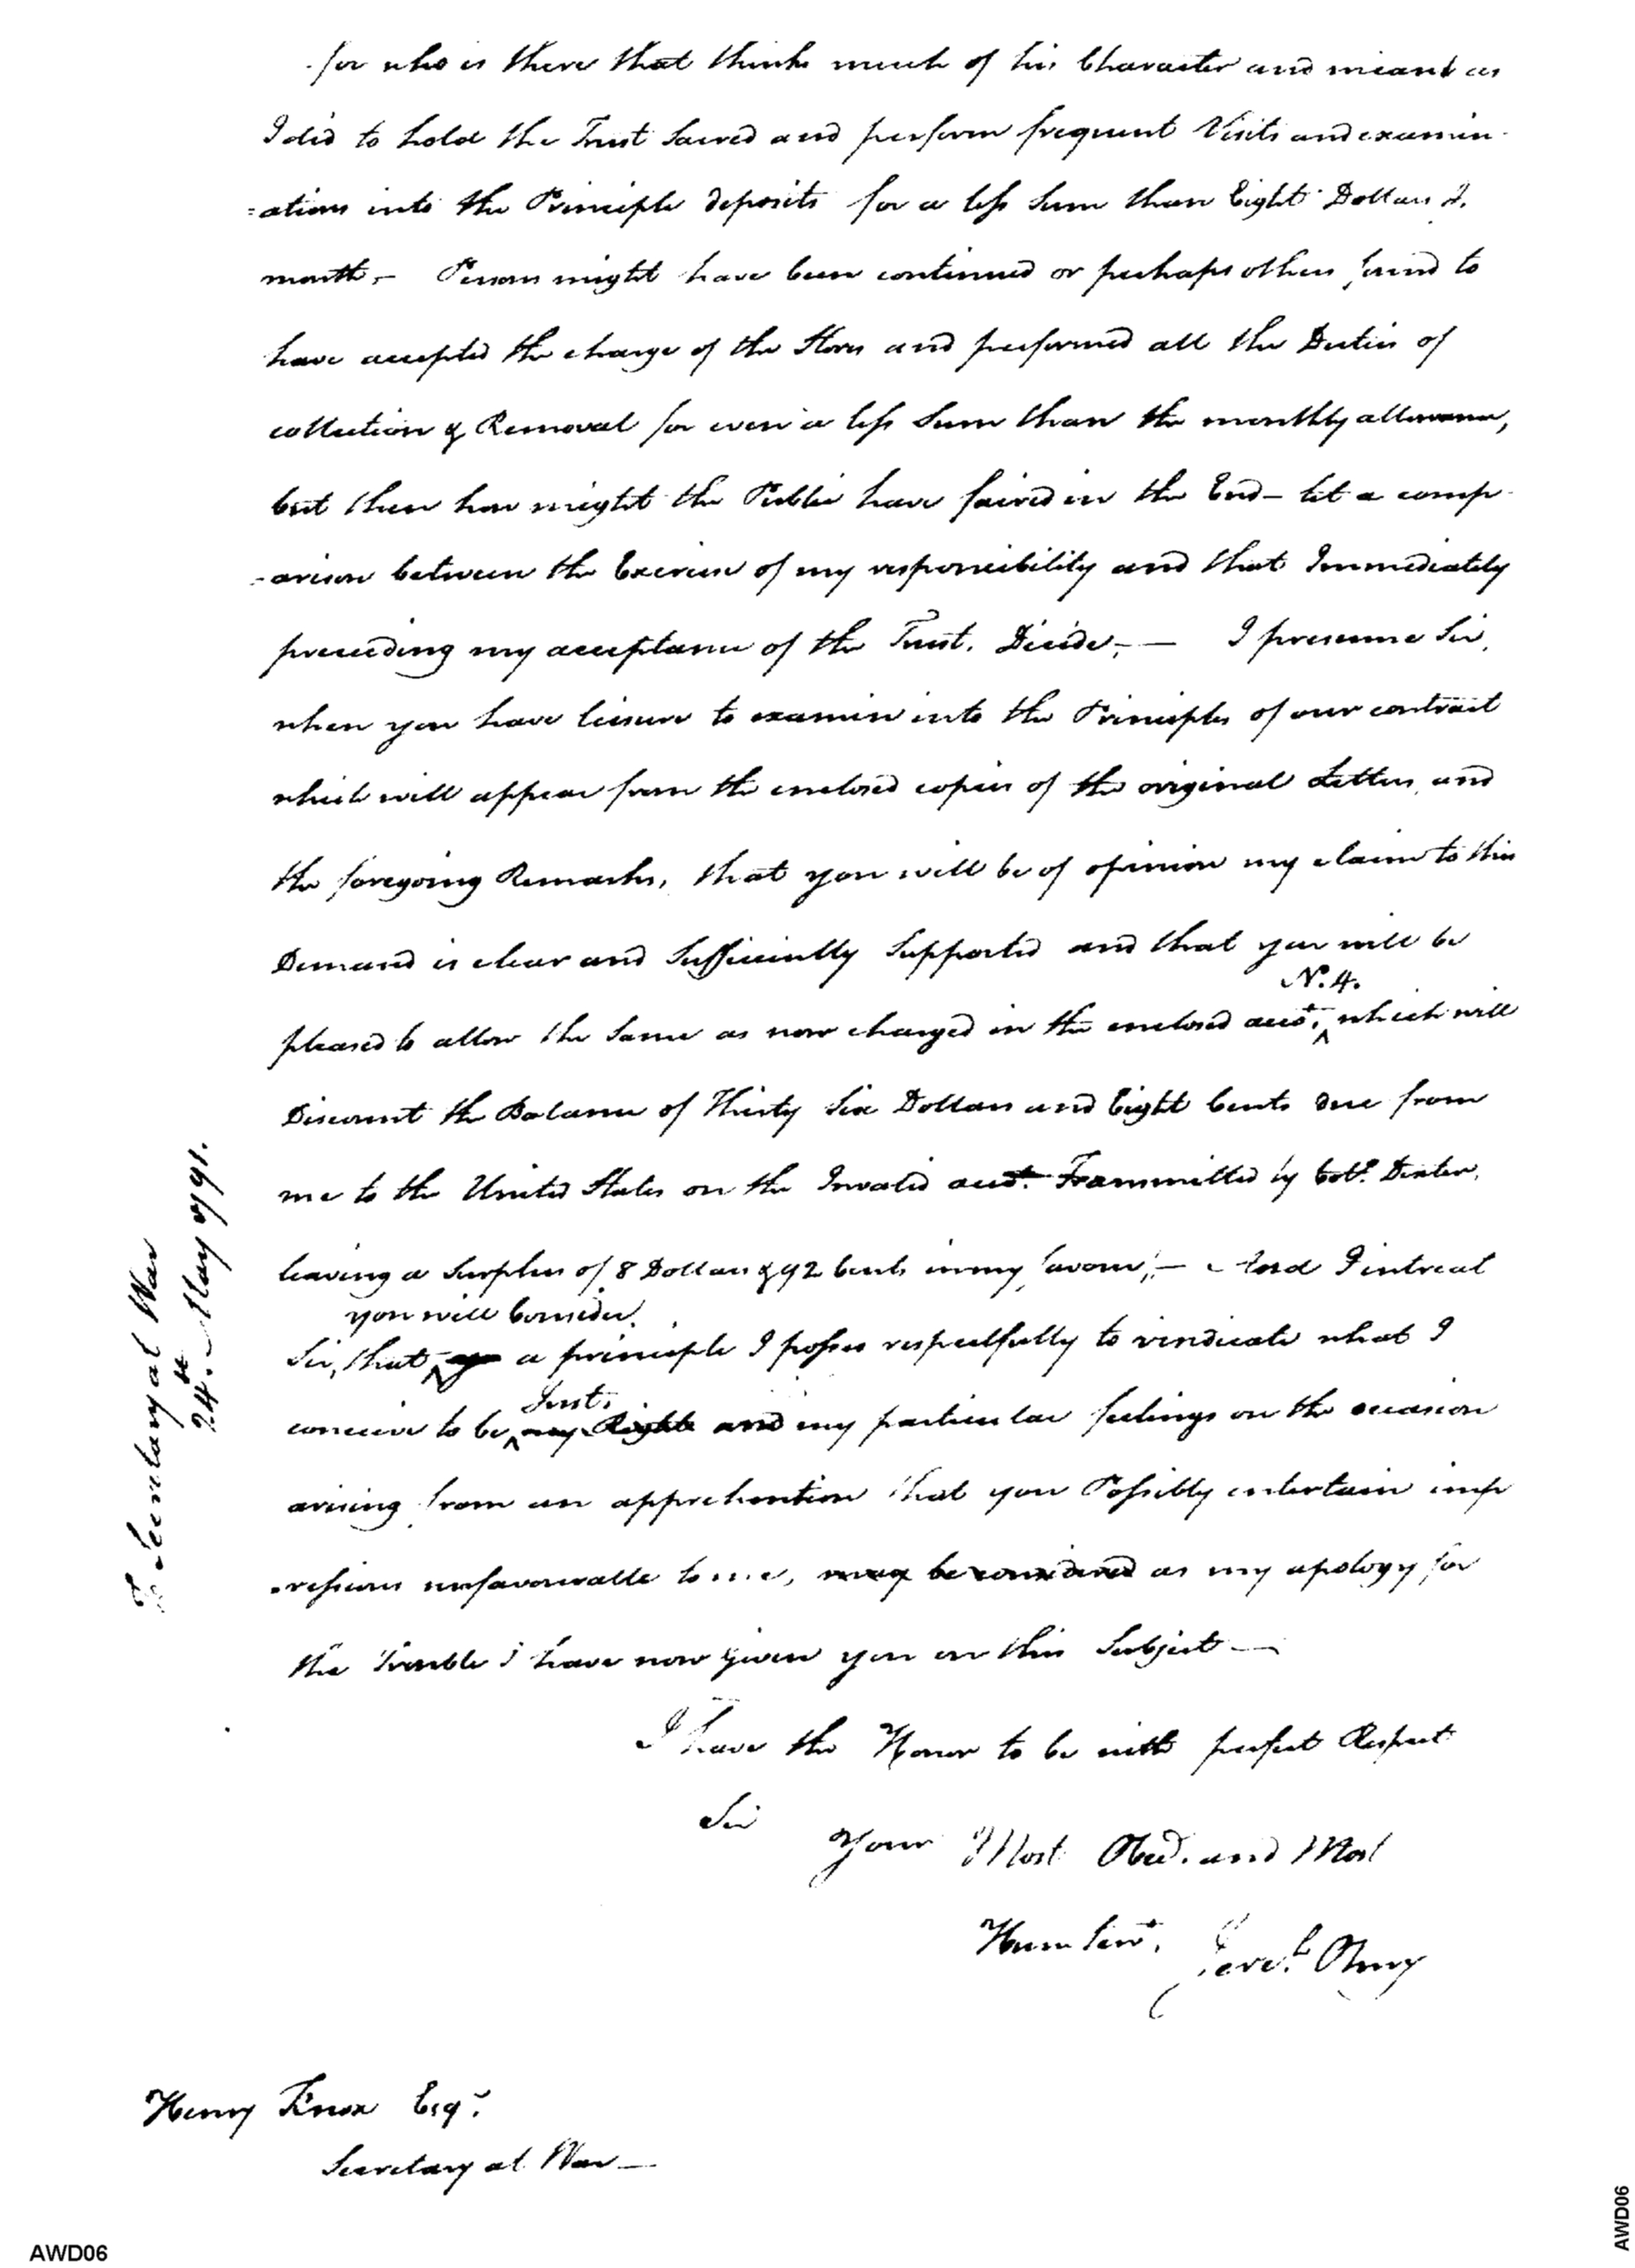 for who is there that thinks much of his Character and meant as
I did to hold the Trust Sacred and perform frequent Visits and examin-
=ations into the Principle deposits for a less Sum than Eight Dollars
month,- Persons might have been continued or perhaps others found to
have accepted the charge of the Stores and performed all the Duties of
collection & Removal for even a less Sum than the monthly allowance,
but then how might the Public have faired in the End- let a comp-
-arison between the Exercise of my responsibility and that Immediately
preceeding my acceptance of the Trust. Decide,- — I presume Sir,
when you have leisure to examin into the Principles of our contract
which will appear from the enclosed copies of the original Letters and
the foregoing Remarks, that you will be of opinion my claim to this
Demand is clear and Sufficiently Supported and that you will be
N.4.
pleased to allow the Same as now charged in the enclosed acct. ^ which will
Discount the Balance of Thirty Six Dollars and Eight Cents due from
me to the United States on the Invalid acct. Transmitted by Coll. Dexter,
leaving a Surplus of 8 Dollars & 92 Cents in my favour;- And I intreat
you will Consider.
Sir, that ^ a principle I posses respectfully to vindicate what I
Just,
conceive to be ^ my Right and my particular feelings on the occasion
arising from an apprehention that you Possibly entertain imp
-ressions unfavourable to me, may be considered as my apology for
the trouble I have now given you on this Subject —
I have the Honor to be with perfect Respect
Sir
Your Most Obed. and Most
Hum Servt. Jerel. Olney
Henry Knox Esqr.
Secretary at War —
To Secretary at War
24th. May 1791.
AWD06
AWD06